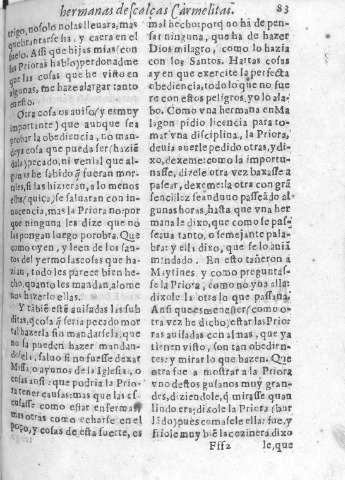 hermanas descalças Carmelitas. 83
trigo, no solo no las lleuara, mas
quebrantarse ha, y caera en el
suelo. Ansi que hijas mias con
las Prioras hablo, perdonadme
que las cosas que he visto en
algunas, me haze alargar tanto
en esto.
Otra cosa os auiso (y es muy
importante) que aunque sea
probar la obediencia, no man-
deys cosa que pueda ser (hazien
dola) pecado, ni venial que al-
gunas he sabido q̃ fueran mor-
tales, si las hizieran, a lo menos
ellas quiça se saluaran con in-
nocencia, mas la Priora no: por
que ninguna les dize que no
la pongan luego por obra. Que
como oyen, y leen de los san-
tos del yermo las cosas que ha-
zian, todo les parece bien he-
cho, quanto les mandan, alome
nos hazerlo ellas.
Y tãbiẽ estẽ auisadas las sub
ditas, q̃ cosa q̃ seria pecado mor
tal hazerla sin mandarsela, que
no la pueden hazer mandan-
dosela, saluo si no fuesse dexar
Missa, o ayunos de la Iglesia, o
cosas ansi: que podria la Prio-
ra tener causas: mas que las es-
cusasse como estar enferma,
mas otras como echarse en el
poço, y cosas de esta fuerte, es
mal hecho: porq̃ no ha de pen-
sar ninguna, que ha de hazer
Dios milagro, como lo hazia
con los Santos. Hartas cosas
ay en que exercite la perfecta
obediencia, todo lo que no fue
re con estos peligros, yo lo ala-
bo. Como vna hermana en Ma
lagon pidio licencia para to-
mar vna disciplina, la Priora,
deuia auerle pedido otras, y di-
xo, dexeme: como la importu-
nasse, dizele otra vez vayase a
passear, dexeme: la otra con grã
senzillez se anduuo passeãdo al
gunas horas, hasta que vna her
mana le dixo, que como se pas-
seaua tanto, o semejante pala-
bra: y ella dixo, que se lo auiã
mandado. En esto tañeron a
Maytines, y como preguntas-
se la Priora, como no yua alla:
dixole la otra lo que passaua.
Ansi que es menester (como o-
tra vez he dicho) estar las Prior
ras auisadas con almas, que ya
tienen visto, son tan obedien-
tes: y mirar lo que hazen. Que
otra fue a mostrar a la Priora
vno destos gusanos muy gran-
des, diziendole, q̃ mirasse quan
lindo era: dixole la Priora (bur
lãdo) pues comasele ella: fue, y
friole muy biẽ: la cozinera dixo
Fff2 le, que